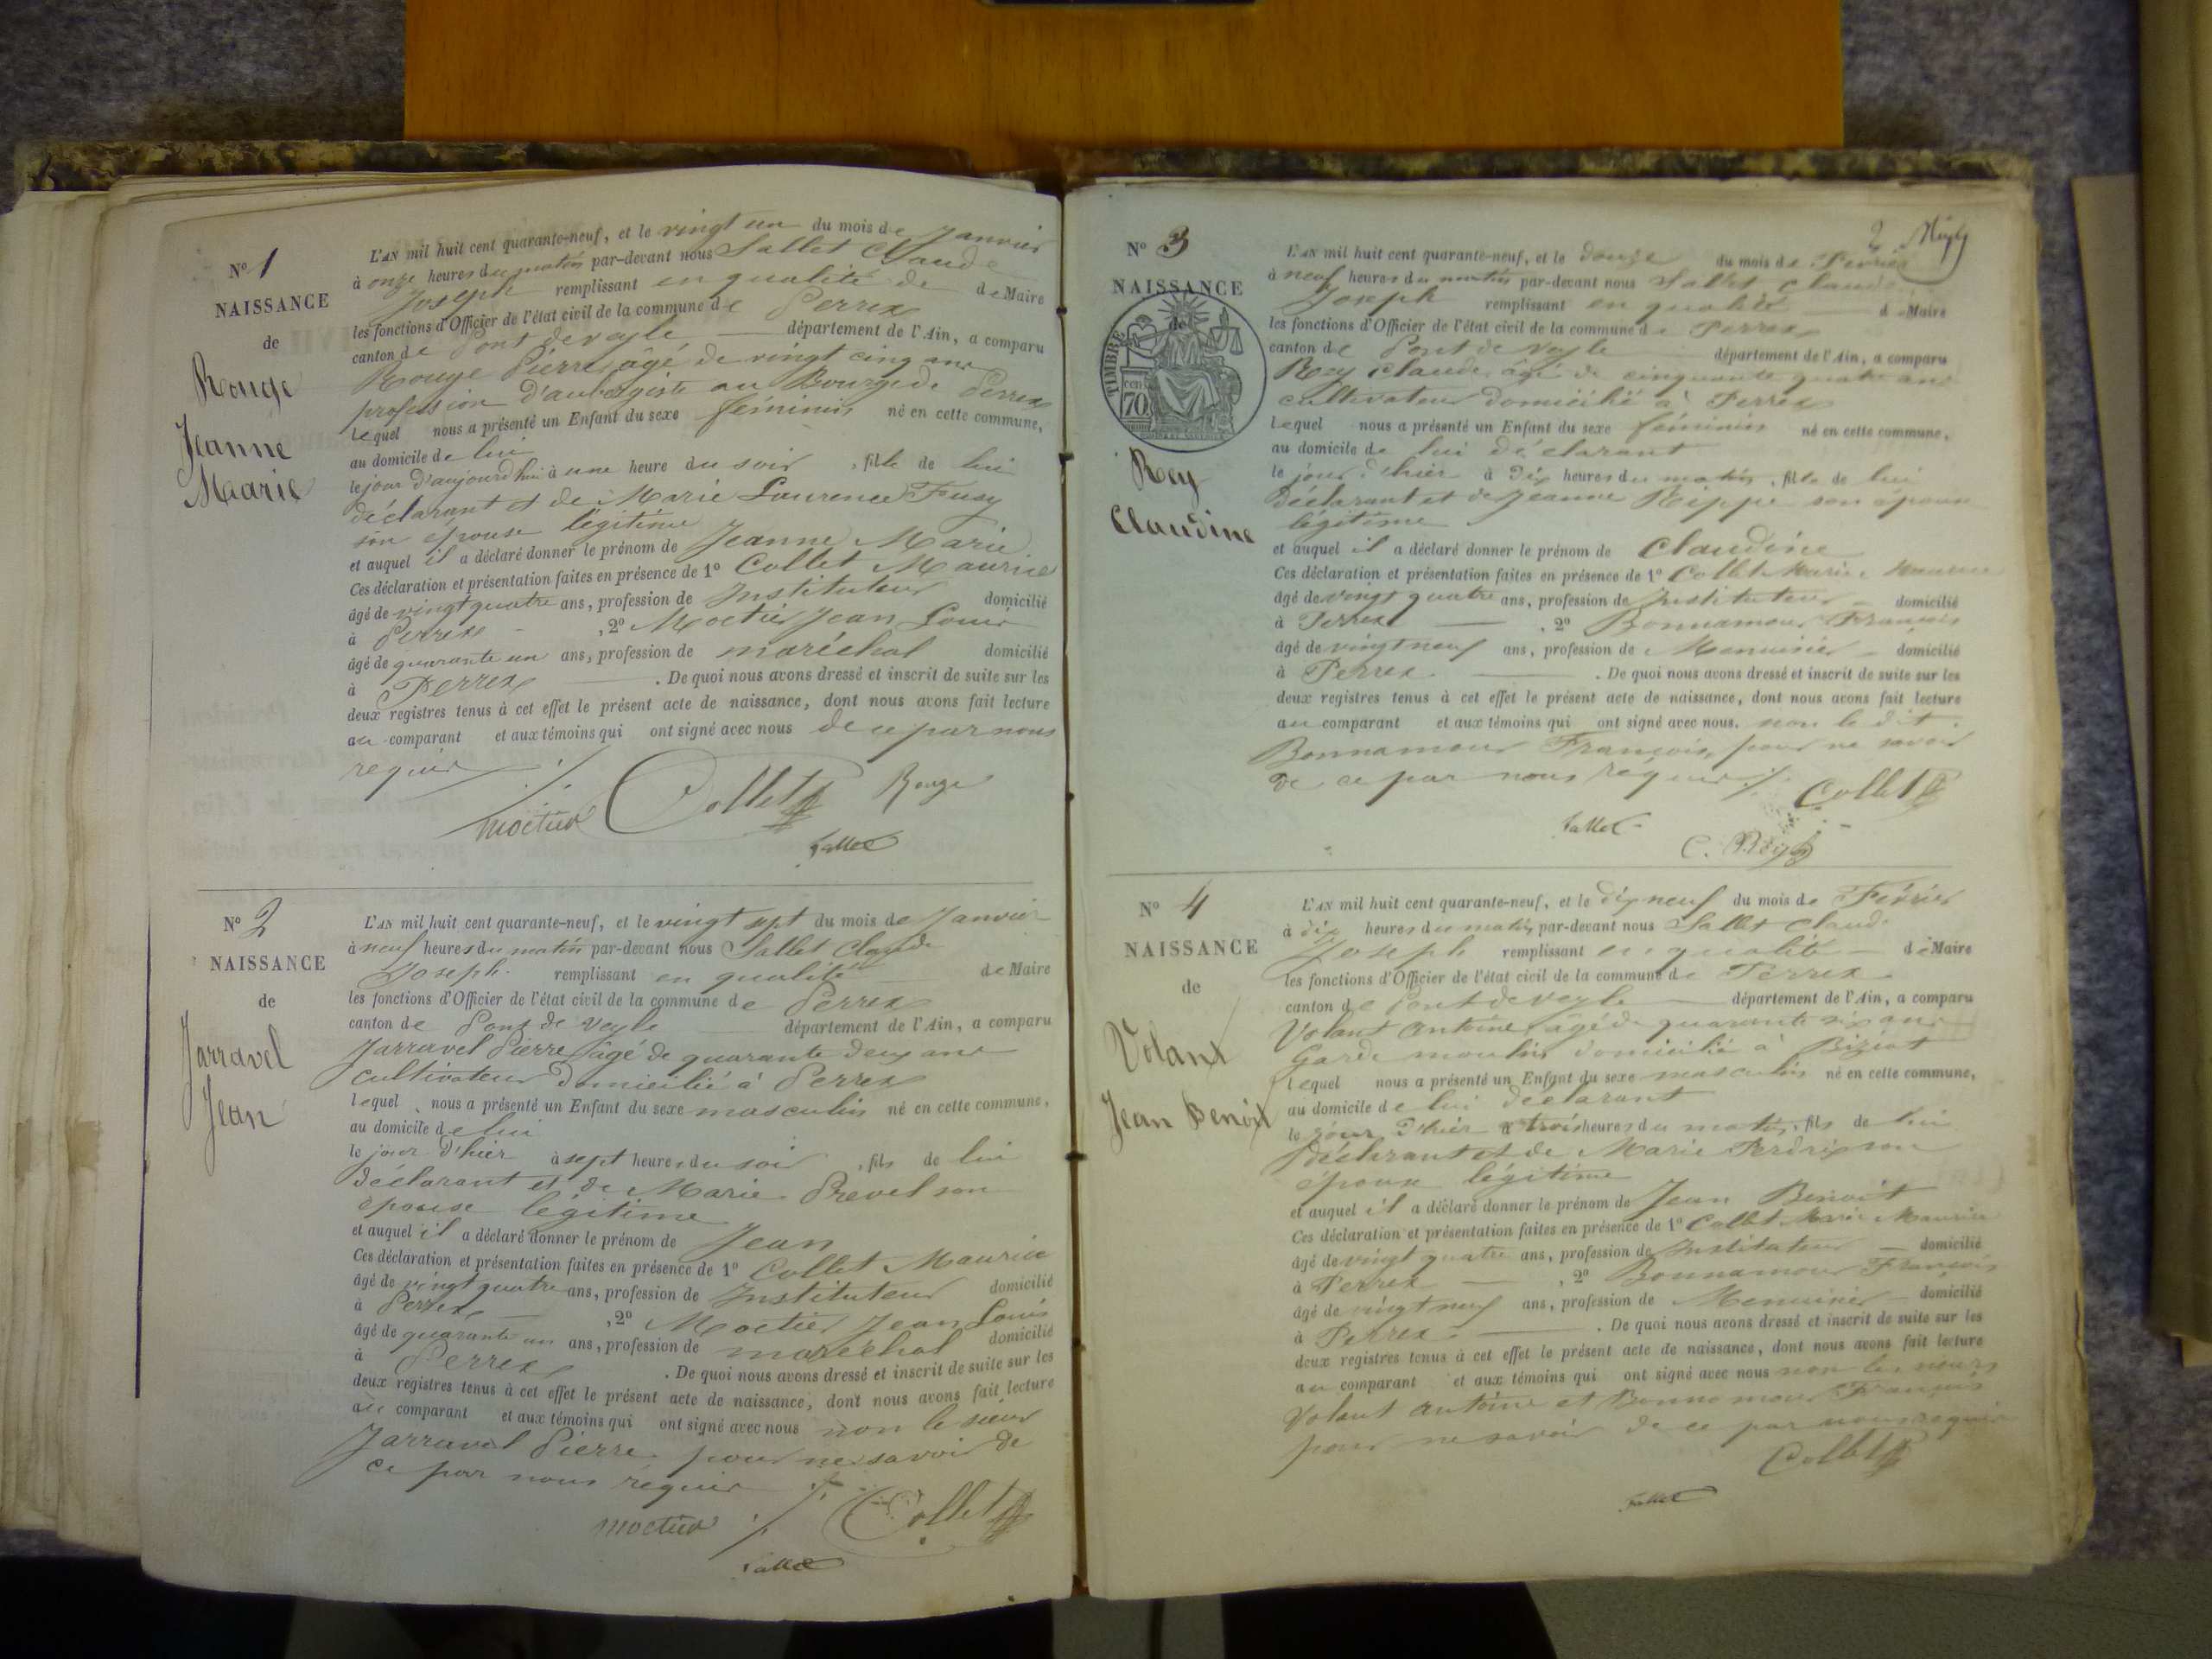 N° 1
NAISSANCE
de
Rouge
Jeanne
Marie
L'AN mil huit cent quarante-neuf, et le vingt un du mois de Janvier
à onze heures du matin par-devant nous Sallet Claude
Joseph remplissant en qualité de de Maire
les fonctions d'Officier de l'état civil de la commune de Perrex
canton de Pont de veyle département de l'Ain, a comparu
Rouge Pierre, âgé de vingt cinq ans
profession d'aubergiste au Bourg de Perrex
lequel nous a présenté un Enfant du sexe féminin né en cette commune,
au domicile de lui
le jour d'aujourd'hui à une heure du soir, fille de lui
déclarant et de Marie Laurence Fusy
son épouse légitime
et auquel il a déclaré donner le prénom de Jeanne Marie
Ces déclaration et présentation faites en présence de 1° Collet Maurice
âgé de vingt quatre ans, profession de Instituteur domicilié
à Perrex , 2° Moctier Jean Louis
âgé de quarante un ans, profession de maréchal domicilié
à Perrex . De quoi nous avons dressé et inscrit de suite sur les
deux registres tenus à cet effet le présent acte de naissance, dont nous avons fait lecture
au comparant et aux témoins qui ont signé avec nous de ce par nous
requis ./.
Moctier Collet Rouge
Sallet
N° 2
NAISSANCE
de
Jarravel
Jean
L'AN mil huit cent quarante-neuf, et le vingt sept du mois de Janvier
à neuf heures du matin par-devant nous Sallet Claude
Joseph. remplissant en qualité de Maire
les fonctions d'Officier de l'état civil de la commune de Perrex
canton de Pont de veyle département de l'Ain, a comparu
Jarravel Pierre, âgé de quarante deux ans
cultivateur domicilié à Perrex
lequel nous a présenté un Enfant du sexe masculin né en cette commune,
au domicile de lui
le jour d'hier à sept heures du soir , fils de lui
déclarant et de Marie Prevel son
epouse légitime
et auquel il a déclaré donner le prénom de Jean
Ces déclaration et présentation faites en présence de 1° Collet Maurice
âgé de vingt quatre ans, profession de Instituteur domicilié
à Perrex , 2° Moctier Jean Louis
âgé de quarante un ans, profession de maréchal domicilié
à Perrex . De quoi nous avons dressé et inscrit de suite sur les
deux registres tenus à cet effet le présent acte de naissance, dont nous avons fait lecture
au comparant et aux témoins qui ont signé avec nous non le sieur
Jarravel Pierre pour ne savoir de
ce par nous requis ./.
Moctier Collet
Sallet
2
N° 3
NAISSANCE
de
TIMBRE
cen 70
Rey
Claudine
L'AN mil huit cent quarante-neuf, et le douze du mois de Février
à neuf heures du matin par-devant nous Sallet Claude
Joseph remplissant en qualité de Maire
les fonctions d'Officier de l'état civil de la commune de Perrex
canton de Pont de veyle département de l'Ain, a comparu
Rey Claude, âgé de cinquante quatre ans
cultivateur domicilié à Perrex
lequel nous a présenté un Enfant du sexe féminin né en cette commune,
au domicile de lui déclarant
le jour d'hier à dix heures du matin, fille de lui
déclarant et de Jeanne Rippe son épouse
légitime
et auquel il a déclaré donner le prénom de Claudine
Ces déclaration et présentation faites en présence de 1° Collet Marie Maurice
âgé de vingt quatre ans, profession de Instituteur domicilié
à Perrex , 2° Bonnamour François
âgé de vingt neuf ans, profession de Menuisier domicilié
à Perrex . De quoi nous avons dressé et inscrit de suite sur les
deux registres tenus à cet effet le présent acte de naissance, dont nous avons fait lecture
au comparant et aux témoins qui ont signé avec nous. non le dit
Bonnamour François, pour ne savoir
de ce par nous requis ./. Collet
Sallet
C. Rey
N° 4
NAISSANCE
de
Volant
Jean Benoit
L'AN mil huit cent quarante-neuf, et le dix neuf du mois de Février
à dix heures du matin, par-devant nous Sallet Claude
Joseph remplissant en qualité de Maire
les fonctions d'Officier de l'état civil de la commune de Perrex
canton de Pont de veyle département de l'Ain, a comparu
Volant Antoine, âgé de quarante six ans
Garde moulin domicilié à Biziat
lequel nous a présenté un Enfant du sexe masculin né en cette commune,
au domicile de lui déclarant
le jour d'hier à trois heures du matin, fils de lui
déclarant et de Marie Perdrix son
épouse légitime
et auquel il a déclaré donner le prénom de Jean Benoit
Ces déclaration et présentation faites en présence de 1° Collet Marie Maurice
âgé de vingt quatre ans, profession de Instituteur domicilié
à Perrex , 2° Bonnamour François
âgé de vingt neuf ans, profession de Menuisier domicilié
à Perrex . De quoi nous avons dressé et inscrit de suite sur les
deux registres tenus à cet effet le présent acte de naissance, dont nous avons fait lecture
au comparant et aux témoins qui ont signé avec nous non les sieurs
Volant Antoine et Bonnamour François
pour ne savoir de ce par nous requis
Collet
Sallet